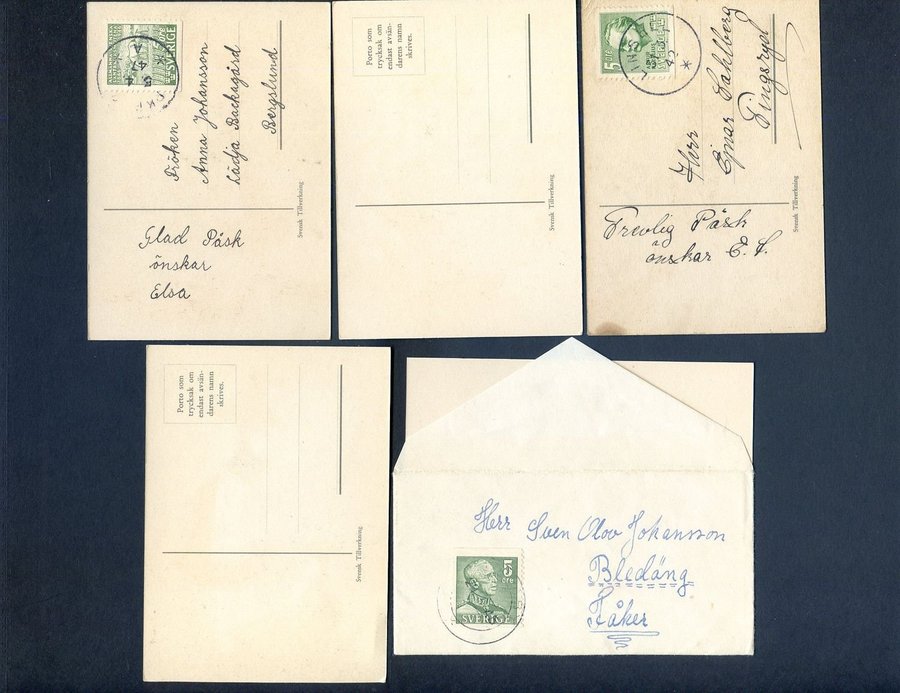 5 öre
SVERIGE
Fröken
Anna Johansson
Lädja Backagård
Bergslund
Svensk Tillverkning
Glad Påsk
önskar
Elsa
Porto som
trycksak om
endast avsän-
darens namn
skrives.
Svensk Tillverkning
5 öre
43
Herr
Ejnar Dahlberg
Tingsryd
Svensk Tillverkning
Trevlig Påsk
önskar E. S.
Porto som
trycksak om
endast avsän-
darens namn
skrives.
Svensk Tillverkning
Herr Sven Olov Johansson
Bledäng
Fåker
5
öre
SVERIGE